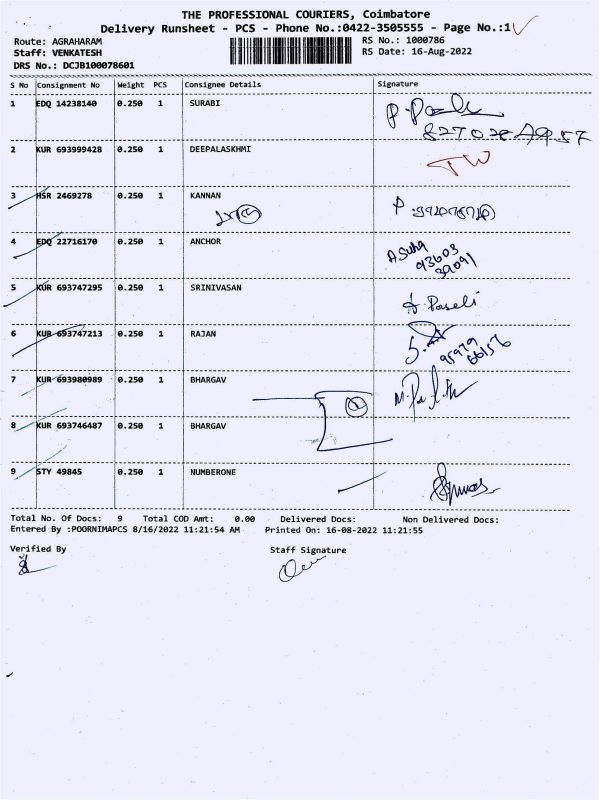 THE PROFESSIONAL COURIERS, Coimbatore
Delivery Runsheet - PCS - Phone No.:0422-3505555 - Page No.:1
Route: AGRAHARAM
RS No.: 1000786
Staff: VENKATESH
RS Date: 16-Aug-2022
DRS No.: DCJB100078601
S No Consignment No Weight PCS Consignee Details Signature
1 EDQ 14238140 0.250 1 SURABI
2 KUR 693999428 0.250 1 DEEPALASKHMI TW
3 HSR 2469278 0.250 1 KANNAN
4 EDQ 22716170 0.250 1 ANCHOR
93603
39091
5 KUR 693747295 0.250 1 SRINIVASAN
6 KUR 693747213 0.250 1 RAJAN
95979
66156
7 KUR 693980989 0.250 1 BHARGAV
8 KUR 693746487 0.250 1 BHARGAV
9 STY 49845 0.250 1 NUMBERONE
Total No. Of Docs: 9 Total COD Amt: 0.00 Delivered Docs: Non Delivered Docs:
Entered By :POORNIMAPCS 8/16/2022 11:21:54 AM Printed On: 16-08-2022 11:21:55
Verified By Staff Signature